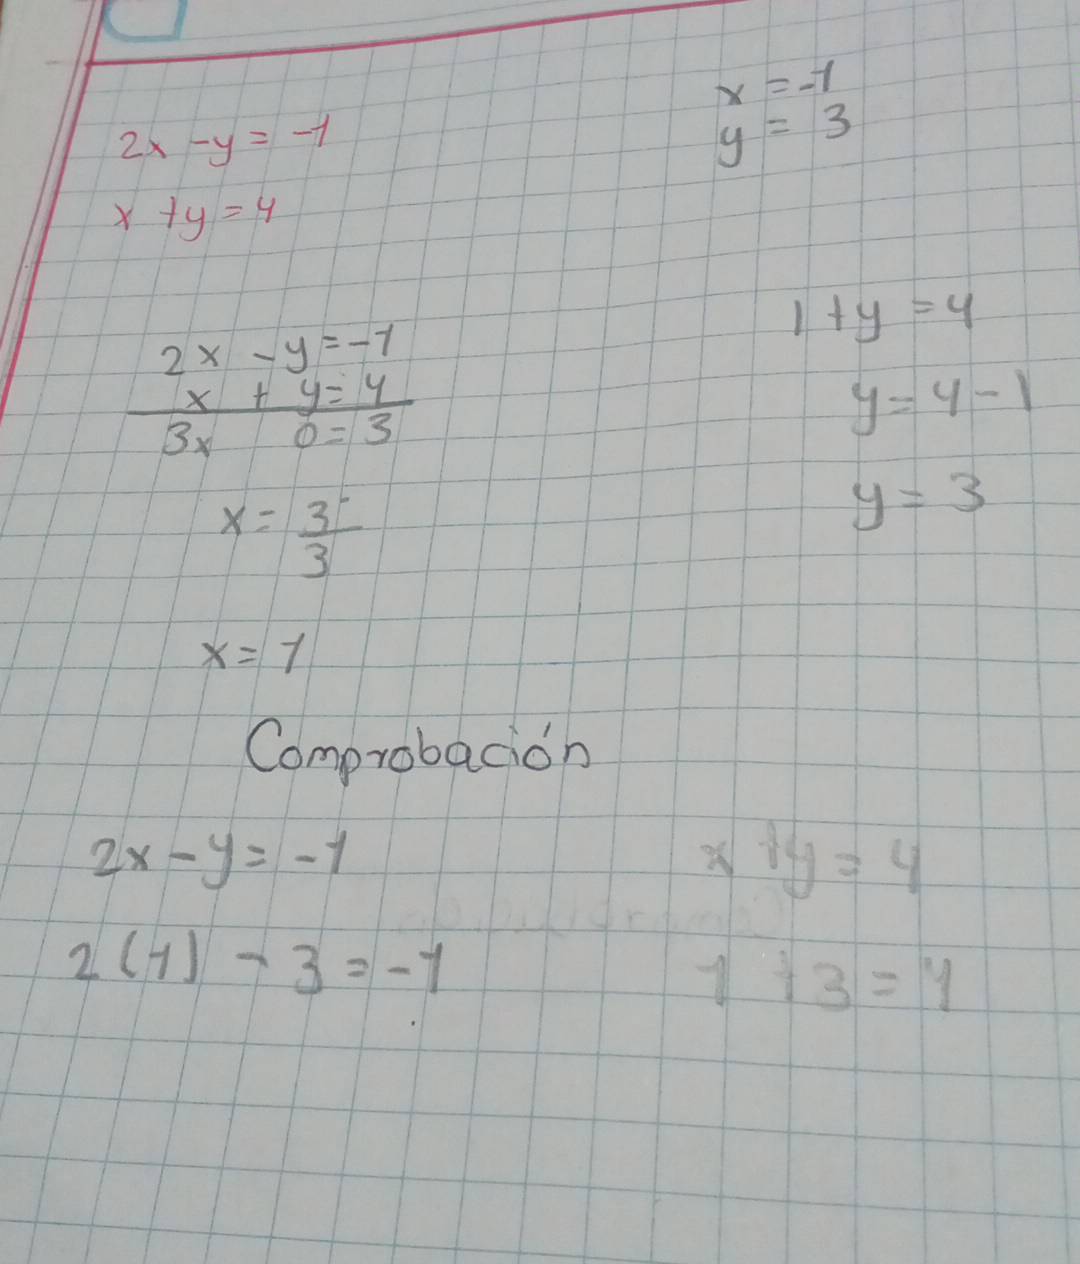 2x - y = -1
x + y = 4
x = -1
y = 3
2x - y = -1
x + y = 4
3x 0 = 3
x = 3/3
x = 1
1 + y = 4
y = 4 - 1
y = 3
Comprobación
2x - y = -1
2(1) - 3 = -1
x + y = 4
1 + 3 = 4